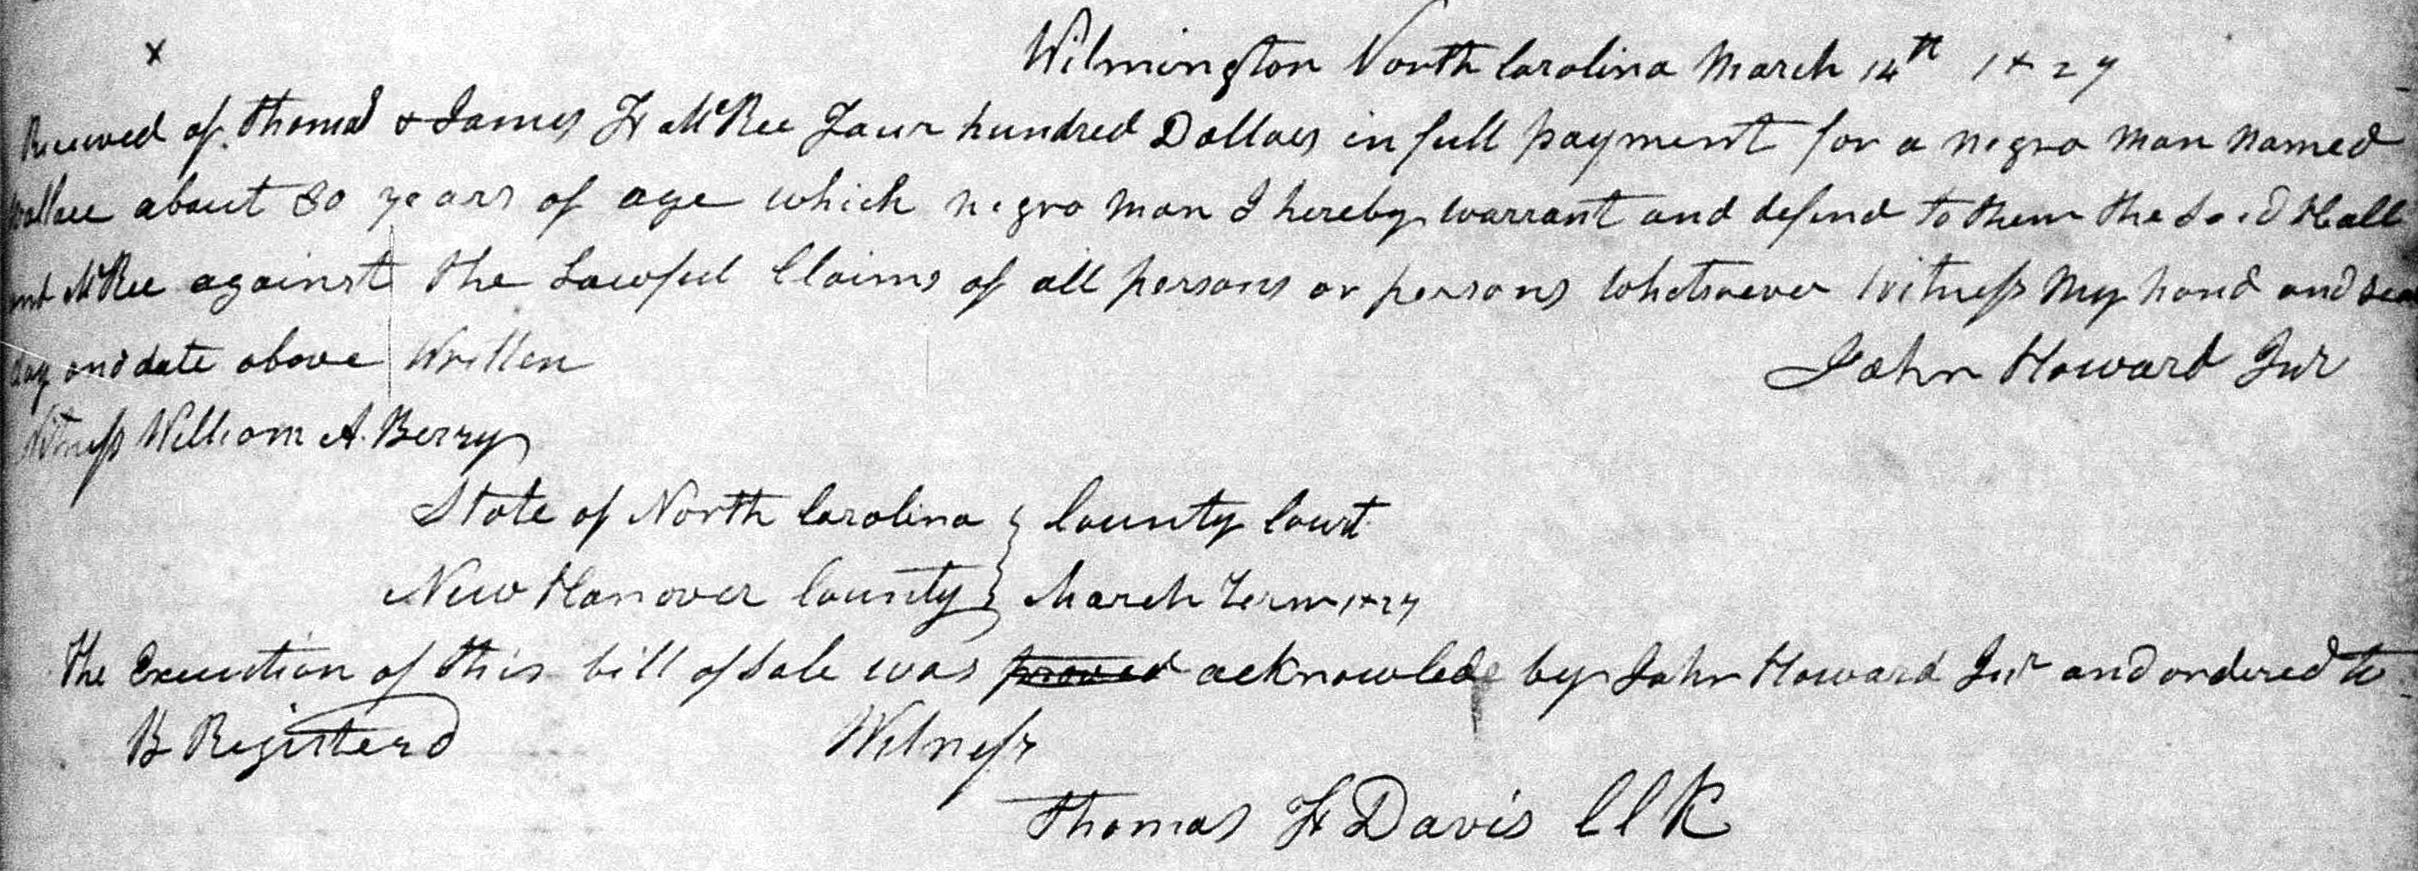 x
Wilmington North Carolina March 14th 1827
Received of Thomas & James H McRee Four hundred Dollars in full payment for a negro man named
Wallace about 30 years of age which negro man I hereby warrant and defend to them the said Hall
and McRee against the Lawful Claims of all persons or persons whatsoever Witness my hand and seal
day and date above Written
John Howard Junr
Witness William A. Berry
State of North Carolina } County Court
New Hanover County } March Term 1827
The Execution of this bill of sale was proved acknowledge by John Howard Junr and ordered to
B Registerd
Witness
Thomas F Davis Clk